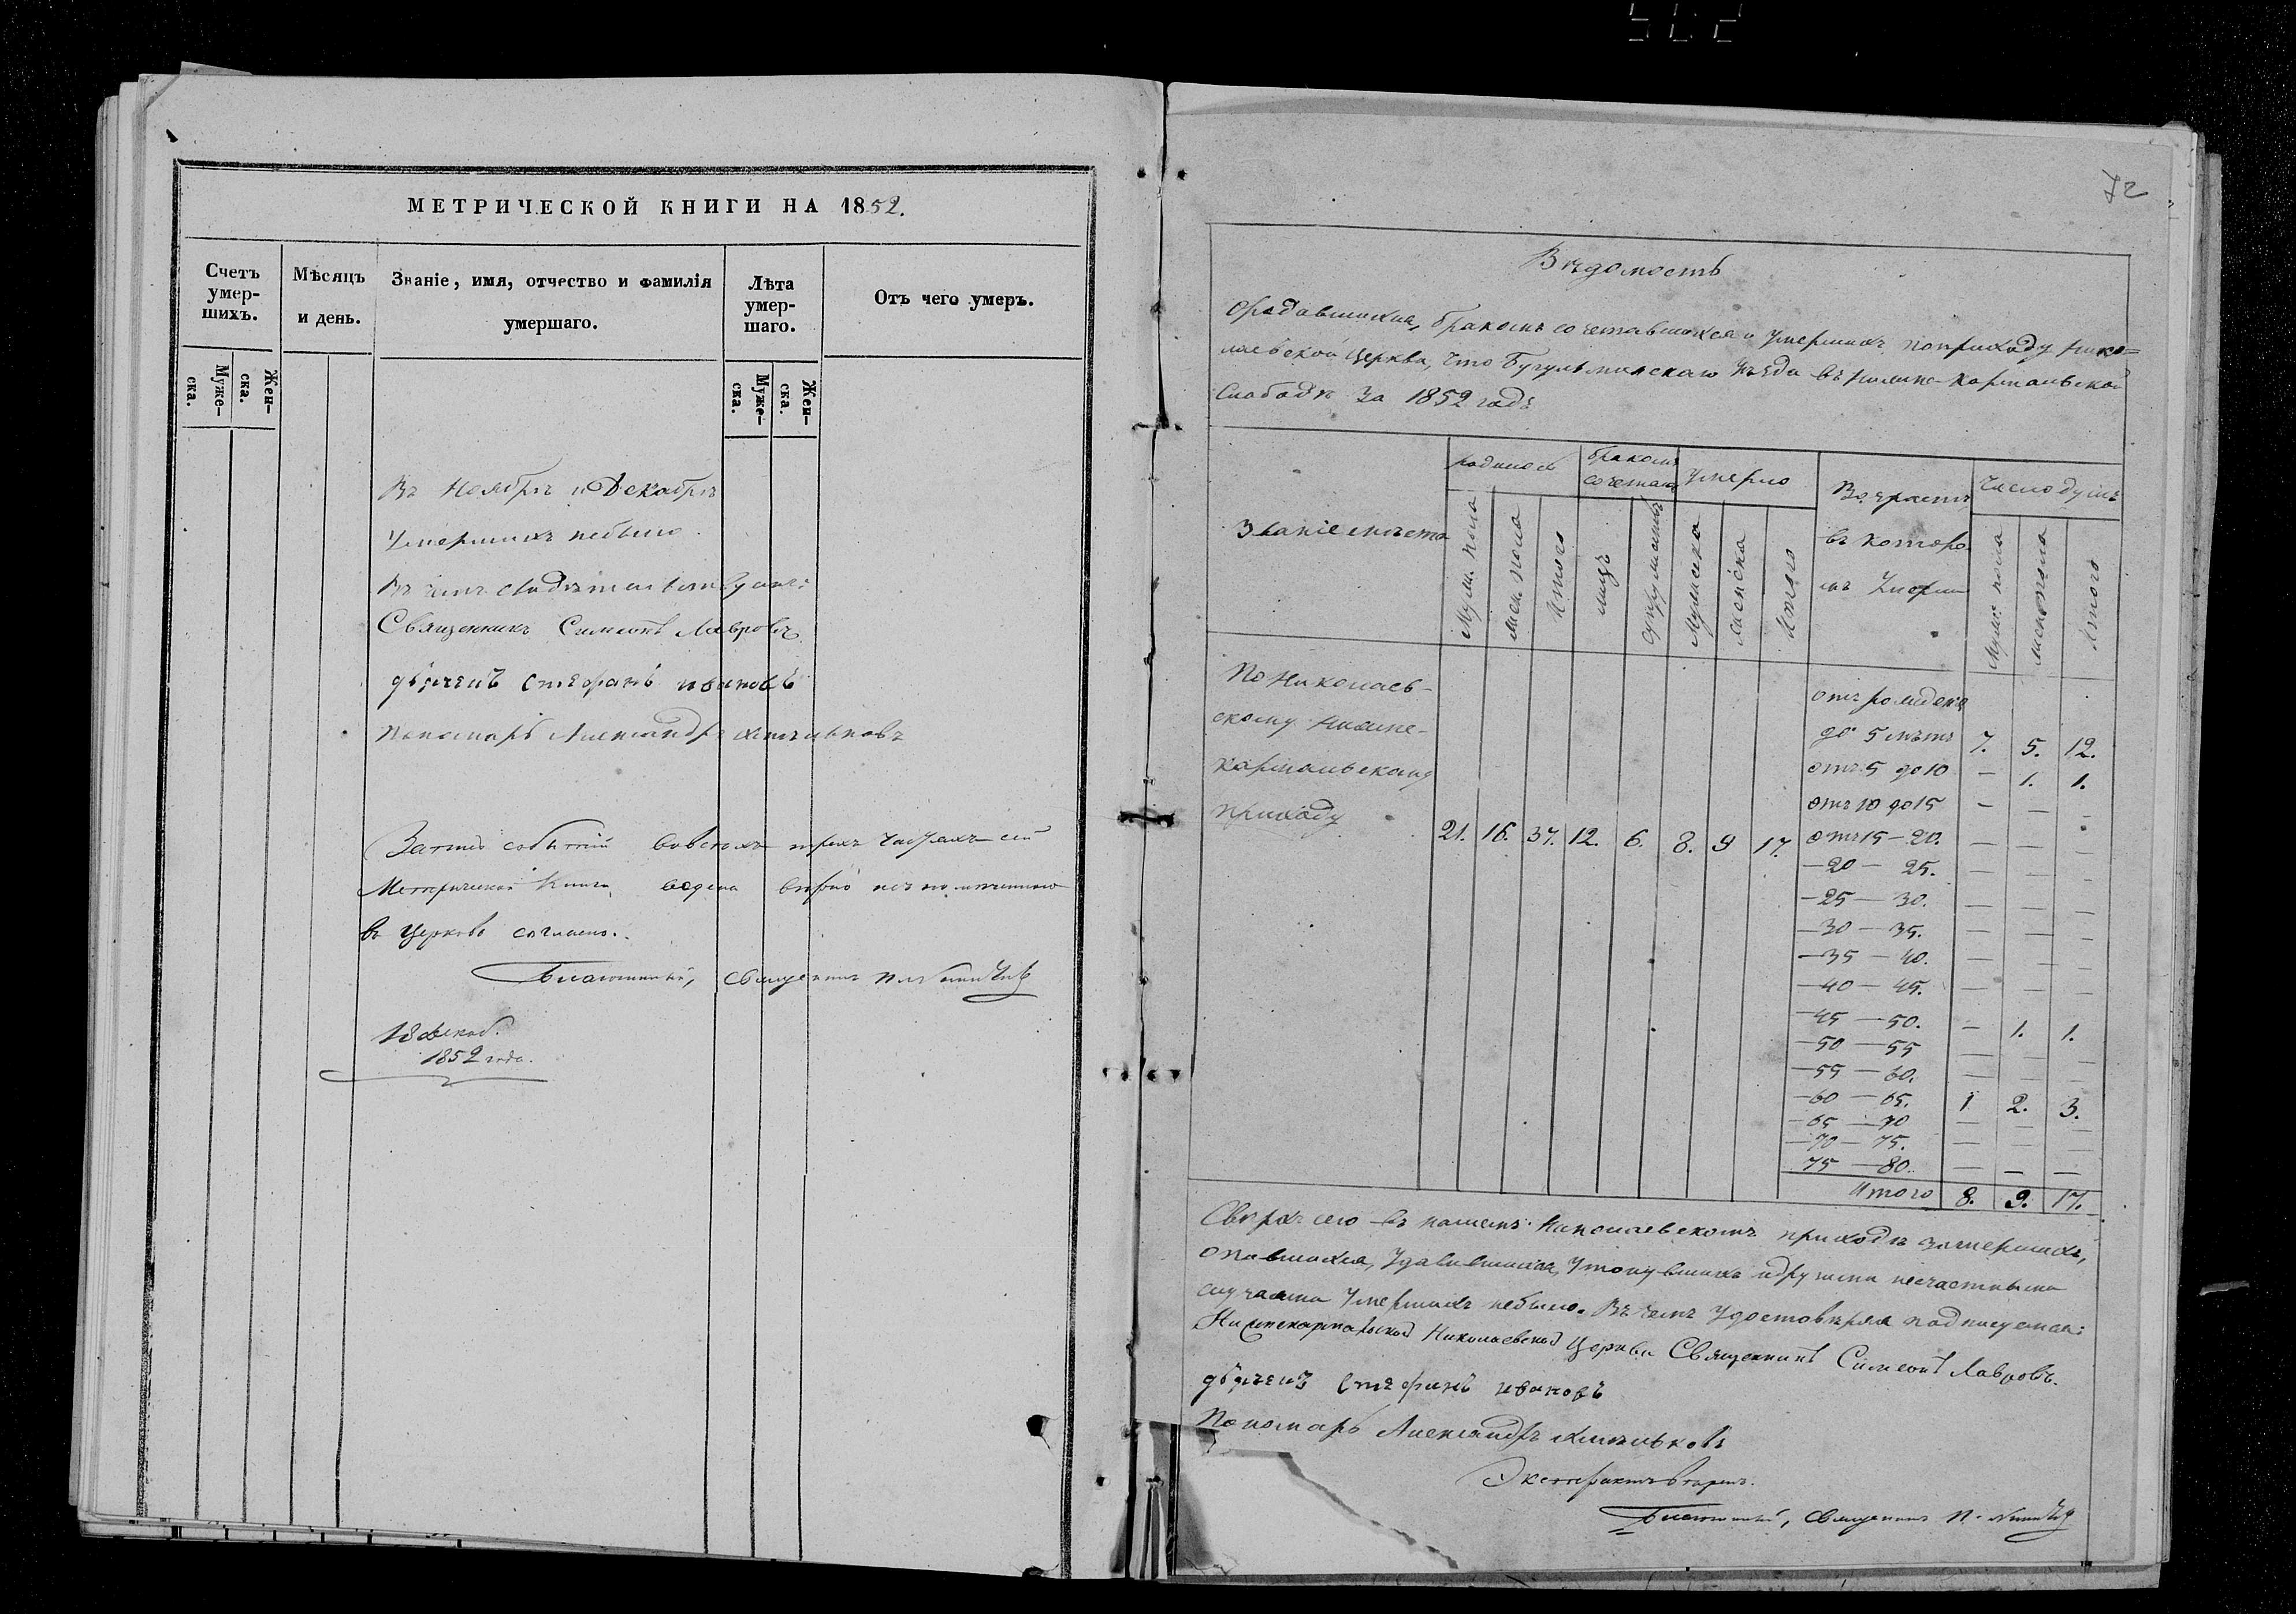 МЕТРИЧЕСКОЙ КНИГИ НА 1852.
Счетъ умер-шихъ.
Мѣсяцъ и день.
Званіе, имя, отчество и фамилія умершаго.
Лѣта умер-шаго.
Отъ чего умеръ.
Муже-ска.
Жен-ска.
Муже-ска.
Жен-ска.
Въ Ноябрѣ и Декабрѣ
Умершихъ небыло.
Въ чемъ свидѣтельствуемъ:
Священникъ Симеонъ Лавровъ
дьячекъ Стефанъ Ивановъ
Пономарь Александръ
Запись событій вовсехъ трехъ частяхъ сей
Метрической Книги ведена вѣрно
въ Церкви согласно.
Благочинный, Священникъ
18 Декаб.
1852 года.
72
Вѣдомость
ородившихся, бракомъ сочетавшихся и Умершихъ поприходу Нико=
лаевской Церкви, что Бугульминскаго Уѣзда въ Нижне-Кармальской
Слободѣ За 1852 годъ
Званіе мѣста
родилось
бракомъ сочетано
Умерло
Возрастъ въ которомъ Умерли
Число душъ
Муж. пола
жен. пола
Итого
лицъ
супружествъ
Мужеска
женска
Итого
Муж. пола
женс. пола
Итого
По Николаев-
скому Нижне-
кармальскому
приходу 21. 16. 37. 12. 6. 8. 9 17.
отъ рожденія
до 5 лѣтъ 7. 5. 12.
отъ 5 до 10 — 1. 1.
отъ 10 до 15 — — —
отъ 15 — 20. — — —
— 20 — 25. — — —
— 25 — 30. — — —
— 30 — 35. — — —
— 35 — 40. — — —
— 40 — 45. — — —
— 45 — 50. — 1. 1.
— 50 — 55 — — —
— 55 — 60. — — —
— 60 — 65. 1 2. 3.
— 65 — 70 — — —
— 70 — 75. — — —
75 — 80. — — —
Итого 8. 9. 17.
Сверхъ сего въ нашемъ Николаевскомъ приходѣ
опившихся, Удавившихся, Утонувшихъ идругими несчастными
случаями Умершихъ небыло. Въ чемъ Удостовѣряя подписуемся:
Нижнекармальской Николаевской Церкви Священникъ Симеонъ Лавровъ.
дьячекъ Стефанъ Ивановъ
Пономарь Александръ
Благочинный, Священникъ